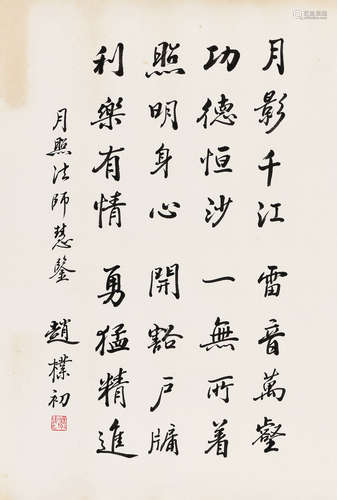 月影千江 雷音萬壑
功德恒沙 一無所着
照明身心 開豁戶牖
利樂有情 勇猛精進
月照法師慧鑒 趙樸初